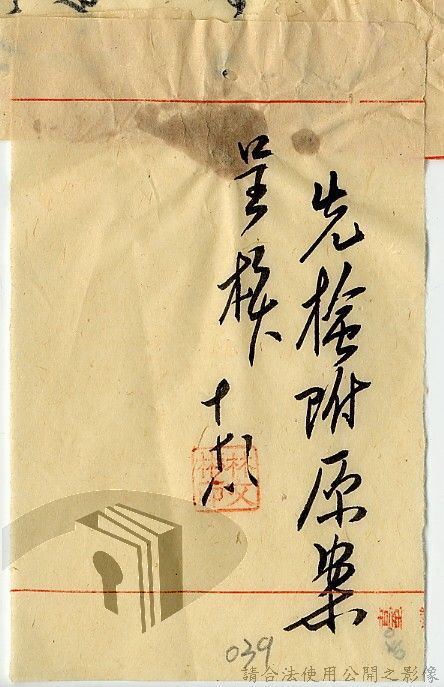 先檢附原案
呈核
039
請合法使用公開之影像